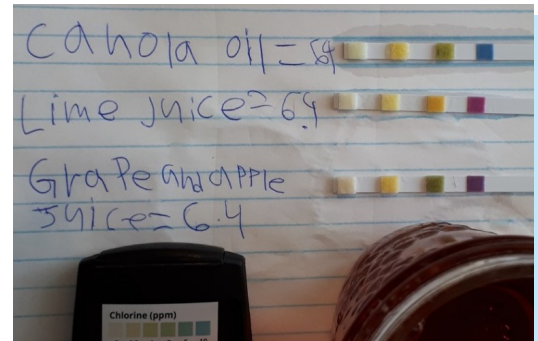 Canola oil =
Lime juice = 6.4
Grape and apple
juice = 6.4
Chlorine (ppm)